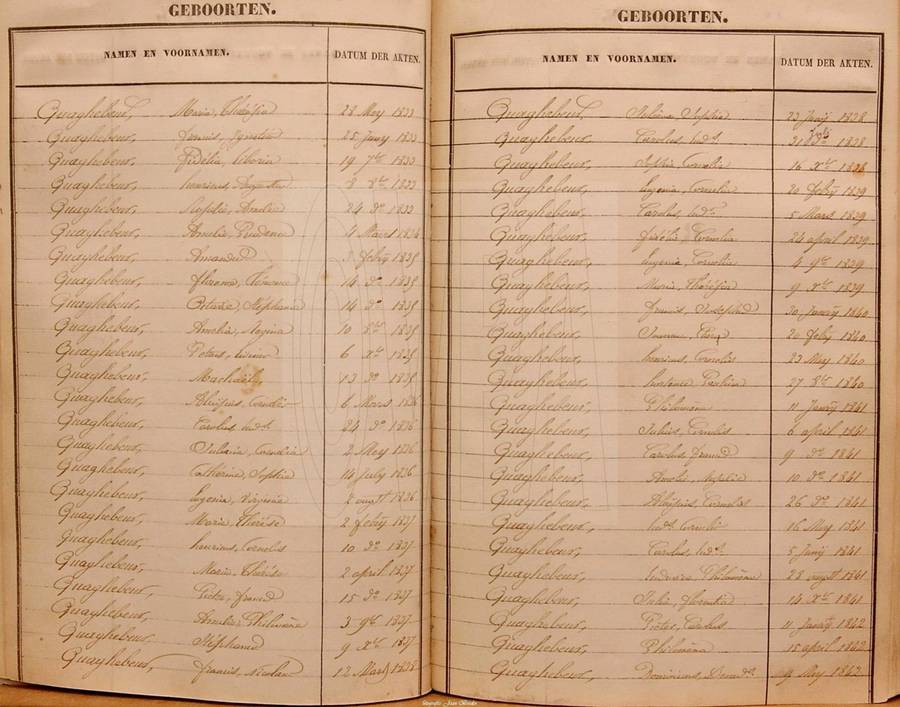 GEBOORTEN.
NAMEN EN VOORNAMEN. DATUM DER AKTEN.
Quaghebeur, Maria, Thérésia 28 May 1833
Quaghebeur, francis, Ignatius 25 Juny 1833
Quaghebeur, Fidelia, Liboria 19 7bre 1833
Quaghebeur, henricus, Augustin 8 8bre 1833
Quaghebeur, Sophia, Amelia 24 do 1833
Quaghebeur, Amelia, Prudence 4 Maart
Quaghebeur, Amandus 3 febry 1835
Quaghebeur, 14 do 1835
Quaghebeur, Stéphanie 14 do 1835
Quaghebeur, Amelia, Regina 10 8bre 1835
Quaghebeur, Petrus, 6 Xbre 1835
Quaghebeur, 13 do 1835
Quaghebeur, Aloysius, Cornelis 6 Maart 1836
Quaghebeur, Carolus Lud. 24 do 1836
Quaghebeur, Juliana, Cornelia 2 May 1836
Quaghebeur, Catherine, Sophia 14 july 1836
Quaghebeur, Eugenia, Virginia ougst 1836
Quaghebeur, Maria, Thérèse 2 febry 1837
Quaghebeur, henricus, Cornelis 10 do 1837
Quaghebeur, Marie, Thérèse 2 april 1837
Quaghebeur, Pieter, francis 15 do 1837
Quaghebeur, Amelia, Philomène 3 9bre 1837
Quaghebeur, Stéphanie 9 Xbre 1837
Quaghebeur, francis, Nicolas 12 Mars 1838
GEBOORTEN.
NAMEN EN VOORNAMEN. DATUM DER AKTEN.
Quaghebeur, Sophia 23 Juny 1838
Quaghebeur, Carolus, Lud. 1838
Quaghebeur, Sophie, Cornelia 16 Xbre 1838
Quaghebeur, Eugenia, Cornelia 20 febry 1839
Quaghebeur, Carolus, Lud. 5 Mars 1839
Quaghebeur, Cornelia 24 april 1839
Quaghebeur, Eugenia, Cornelia 4 9bre 1839
Quaghebeur, Maria, Thérésia 9 Xbre 1839
Quaghebeur, francis, Josephus 30 January 1840
Quaghebeur, 20 feby 1840
Quaghebeur, henricus, Cornelis 23 May 1840
Quaghebeur, Constance, Paulina 27 8bre 1840
Quaghebeur, Philomène 11 January 1841
Quaghebeur, Julius, Cornelis 6 april 1841
Quaghebeur, Carolus, francis 9 do 1841
Quaghebeur, Amelie, Sophie 10 do 1841
Quaghebeur, Aloysius, Cornelis 26 do 1841
Quaghebeur, Lud. Cornelis 16 May 1841
Quaghebeur, Carolus, Lud. 5 Juny 1841
Quaghebeur, Ludovica, Philomène 28 ougst 1841
Quaghebeur, Julie, 14 Xbre 1841
Quaghebeur, Pieter, Carolus 11 January 1842
Quaghebeur, Philomena 15 april 1842
Quaghebeur, Dominicus, 9 May 1842